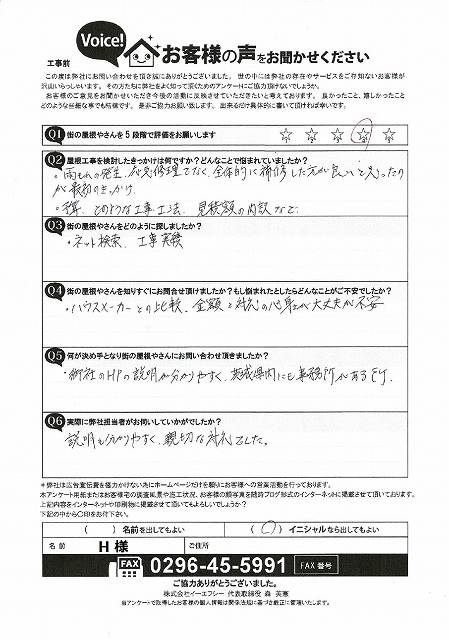 Voice!
工事前
お客様の声をお聞かせください
この度は弊社にお問い合わせを頂き誠にありがとうございました。世の中には弊社の存在やサービスをご存知ないお客様が
沢山いらっしゃいます。その方たちに弊社をよく知って頂くためのアンケートにご協力頂けないでしょうか。
お客様のご意見をお聞かせいただき今後の活動に反映させていきたいと考えております。良かったこと、嬉しかったこと
どのような些細な事でも結構です。是非ご協力お願い致します。出来るだけ具体的に書いて頂ければ幸いです。
Q1 街の屋根やさんを5段階で評価をお願いします ☆ ☆ ☆ ☆ ☆
5 4 3 2 1
Q2 屋根工事を検討したきっかけは何ですか?どんなことで悩まれていましたか?
・雨もれの発生 修理でなく、全体的に補修した方が良いと思ったの
が最初のきっかけ
・予算、どのような工事工法、見積額の内訳など
Q3 街の屋根やさんをどのように探しましたか?
・ネット検索、工事実績
Q4 街の屋根やさんを知りすぐにお問合せ頂けましたか?もし悩まれたとしたらどんなことがご不安でしたか?
・ハウスメーカーとの比較、金額と対応 が大丈夫か不安
Q5 何が決め手となり街の屋根やさんにお問い合わせ頂きましたか?
・御社のHPの説明が分かりやすく、茨城県内にも事務所がある所
Q6 実際に弊社担当者がお伺いしていかがでしたか?
説明も分かりやすく、親切な対応でした。
*弊社は広告宣伝費を極力かけない為にホームページだけを頼りにお客様への営業活動を行っております。
本アンケート用紙またはお客様宅の調査風景や施工状況、お客様の顔写真を随時ブログ形式のインターネットに掲載させて頂いております。
上記内容をインターネットや印刷物に掲載させて頂いてもよろしいでしょうか?
下記の中から○印をお付下さい。
( ) 名前を出してもよい (○) イニシャルなら出してもよい
名前 H様 ご住所
FAX 0296-45-5991 FAX番号
ご協力ありがとうございました。
株式会社イーエフシー 代表取締役 森 英憲
当アンケートで取得したお客様の個人情報は関係法規に基づき厳正に管理いたします。